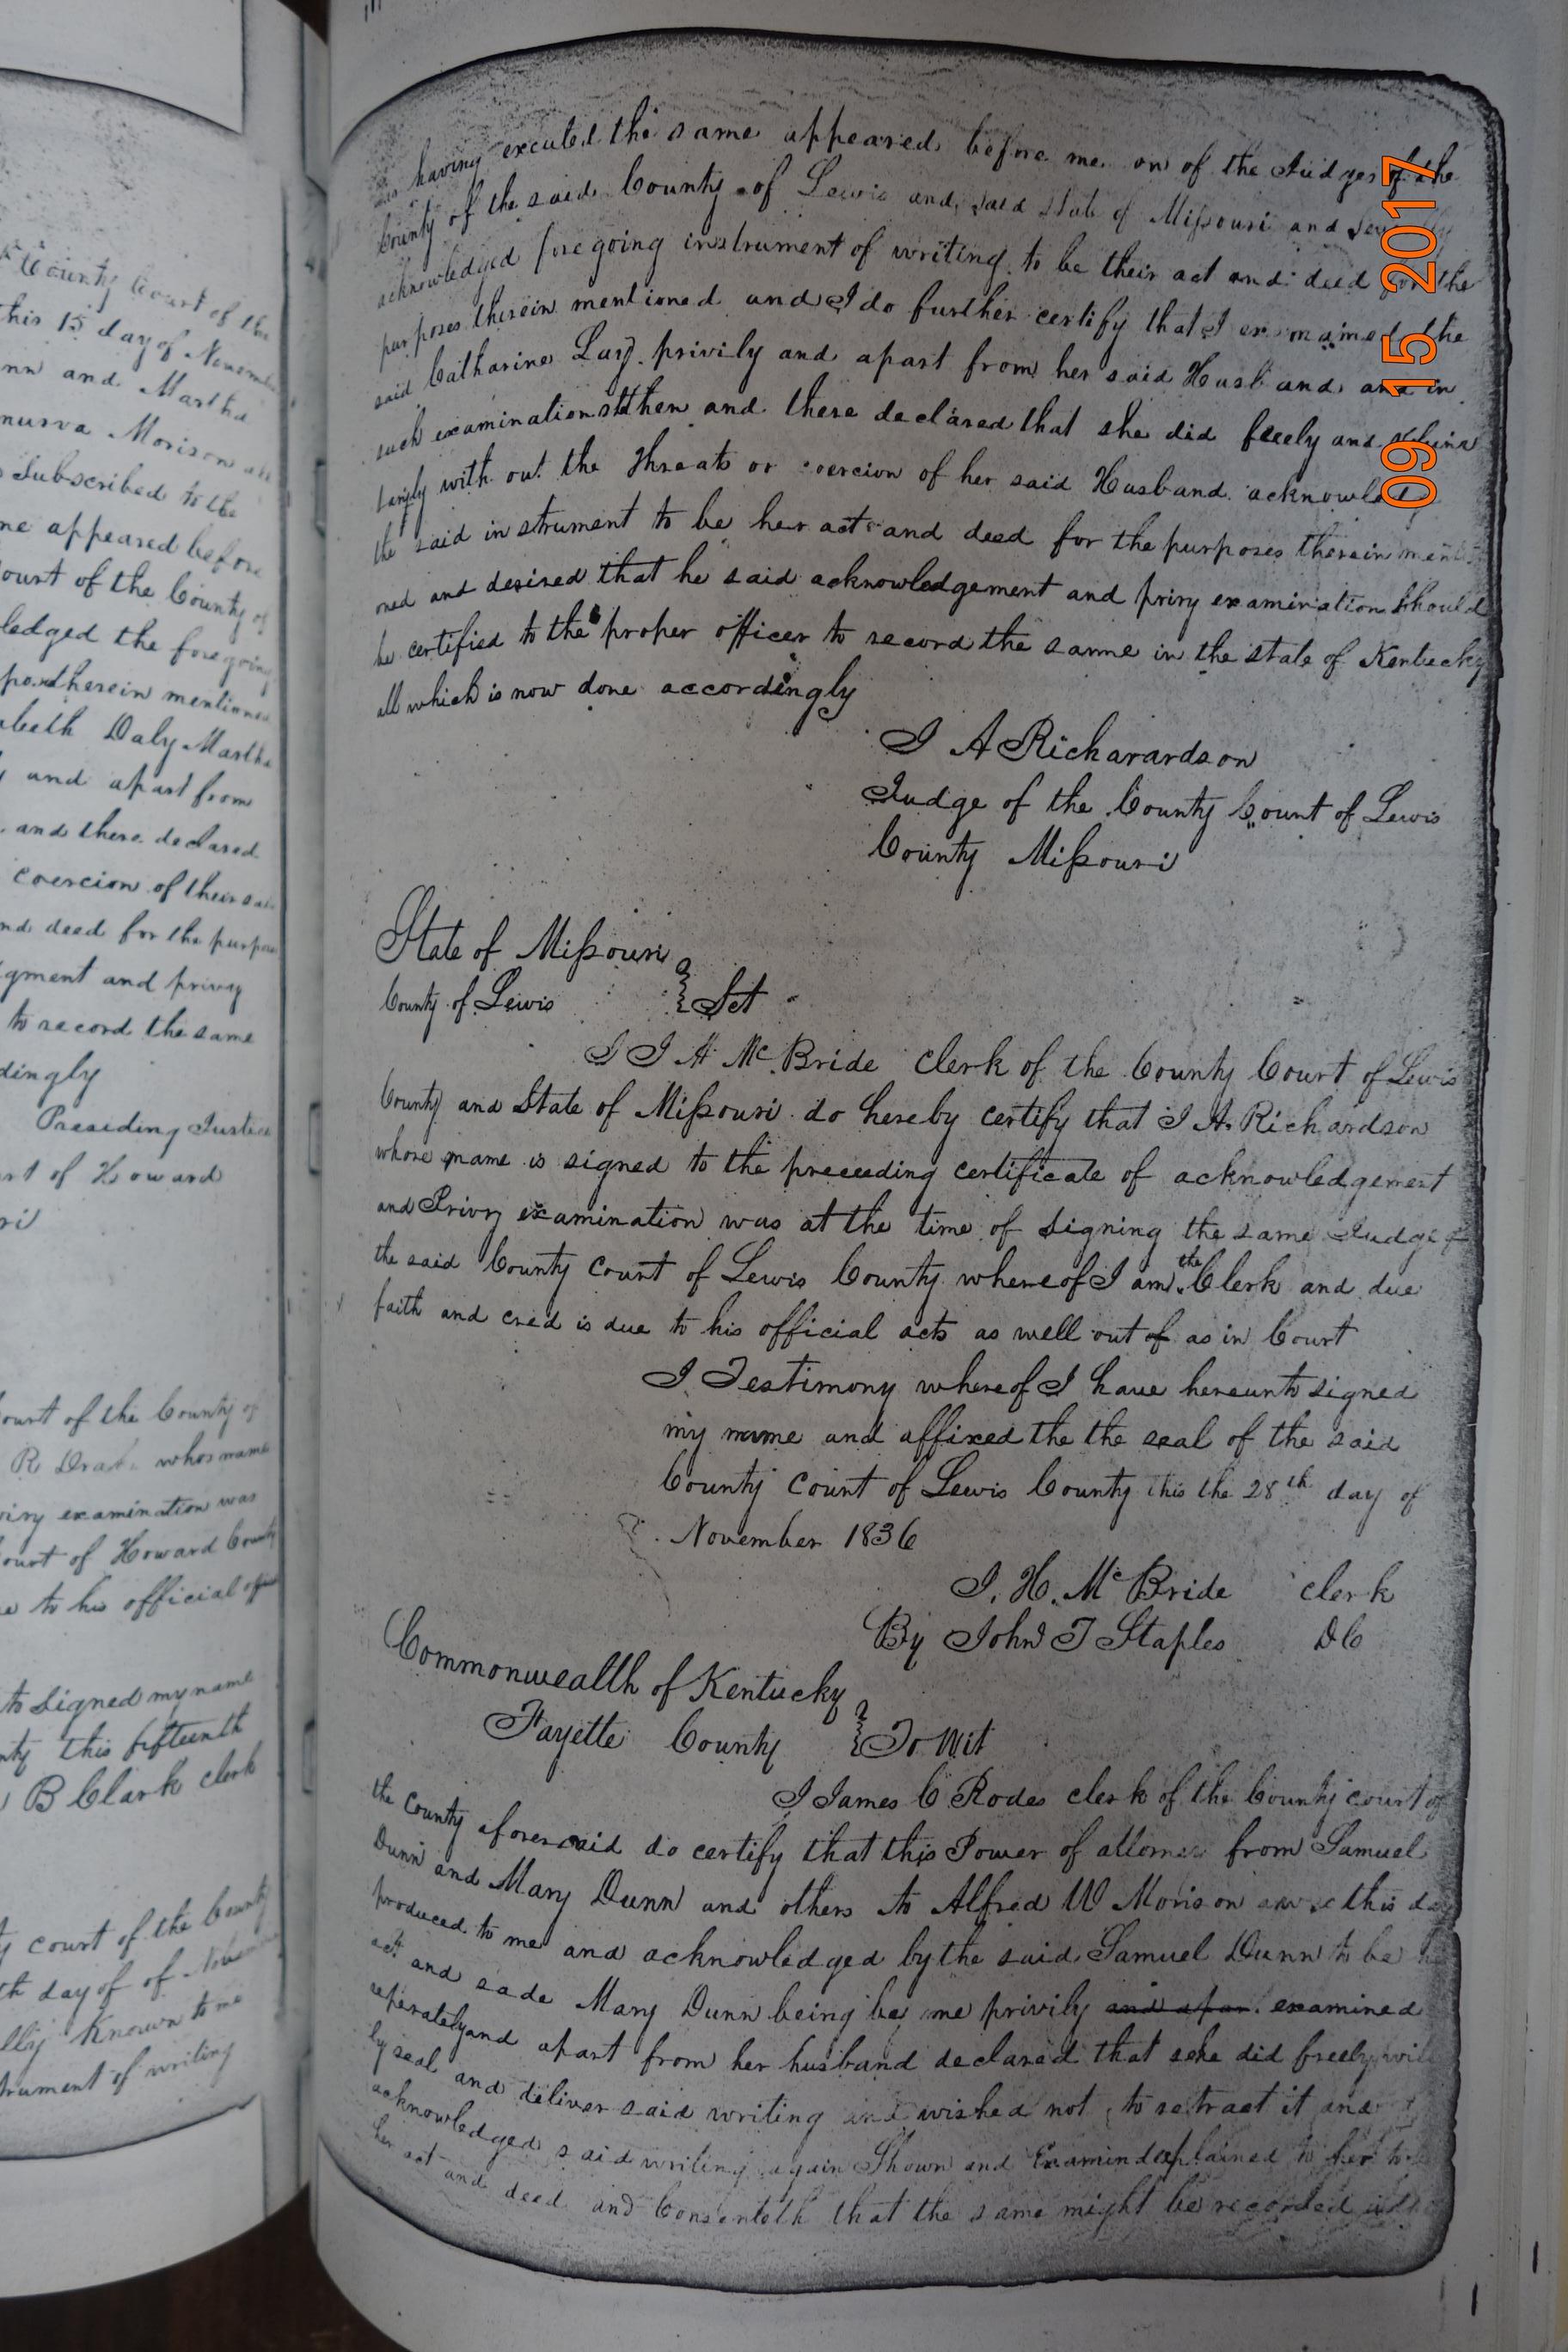 County Court of the
this 15 day of Novem
nn and Martha
nurva Morison
Subscribed to the
me appeared before
ourt of the County of
ledged the foregoing
therein mentioned
abeth Daly Martha
and apart from
and there declared
coercion of their sa
nd deed for the purpo
gment and privy
to record the same
dingly
Presiding Justice
rt of Howard
ri
ourt of the County of
R Drake whos name
ivry examination was
ourt of Howard County
e to his official
to signed my name
nty this fifteenth
B Clark clerk
y court of the County
th day of of Nove
lly Known to me
trument of writing
having excuted the same appeared before me on of the Judges of the
County of the said County of Lewis and said State of Missouri and
acknowledged foregoing instrument of writing to be their act and deed for the
purposes therein mentioned and I do further certify that I exsmamed the
said Catharine Lary privily and apart from her said Husband and in
such examination then and there declared that she did freely and
tarily with out the threats or coercion of her said Husband acknowle
the said instrument to be her act and deed for the purposes therein menti
oned and desired that he said acknowledgement and privy examination should
be certified to the proper officer to record the same in the state of Kentucky
all which is now done accordingly
J A Richarardson
Judge of the County Count of Lewis
County Missouri
State of Missouri
County of Lewis } Sct
I J H McBride clerk of the County Court of Lewis
County and State of Missouri do hereby certify that J A. Richardson
whore name is signed to the preceeding certificate of acknowledgement
and Privy examination was at the time of signing the same Judge of
the said County Court of Lewis County whereof I am the Clerk and due
faith and cred is due to his official acts as well out of as in Court
I Testimony whereof I have hereunto signed
my name and affixed the the seal of the said
County Count of Lewis County this the 28th day of
November 1836
J. H. McBride clerk
By John T Staples DC
Commonwealth of Kentucky
Fayette County } To Wit
I James C Rodes clerk of the County court of
the County aforesaid do certify that this Power of attorney from Samuel
Dunn and Mary Dunn and others to Alfred W Morison this da
produced to me and acknowledged by the said Samuel Dunn to be
act and sade Mary Dunn being by me privily and apar examined
seperately and apart from her husband declared that sehe did freely wil
ly seal and deliver said writing and wished not to retract it and
acknowledged said writing again Shown and Examindexplained to her to
her act and deed and Consenteth that the same might be recorded
09 15 2017